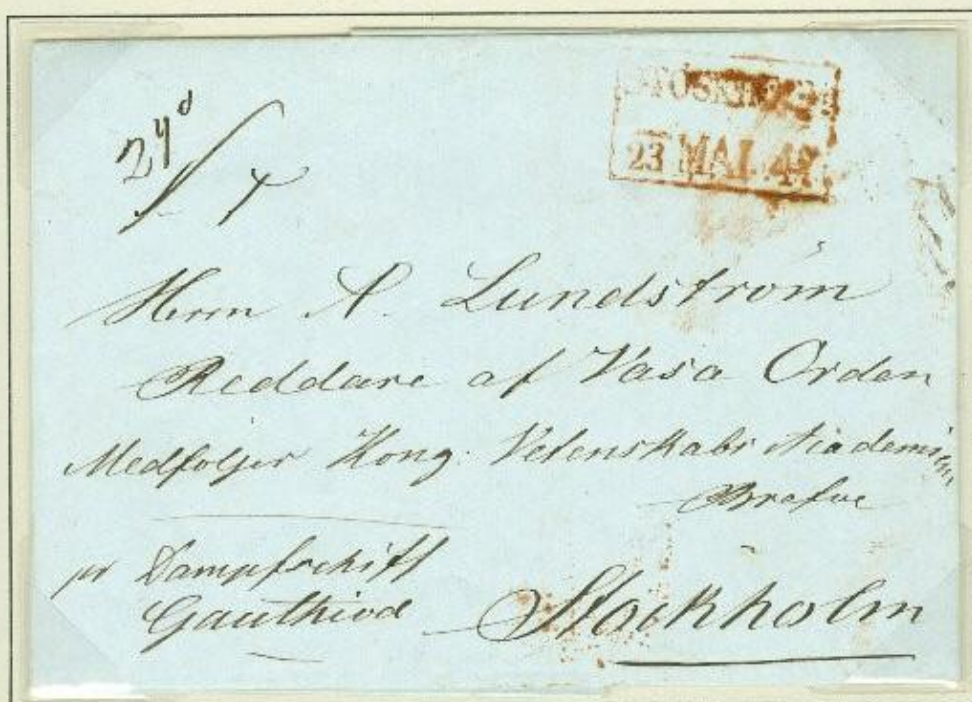 23 MAI. 4
Herrn A. Lundström
Reddare af Vasa Orden
Medföljer Kong. Vetenskabs Academiens
Brefve
pr Dampfschiff
Gauthiod
Stockholm